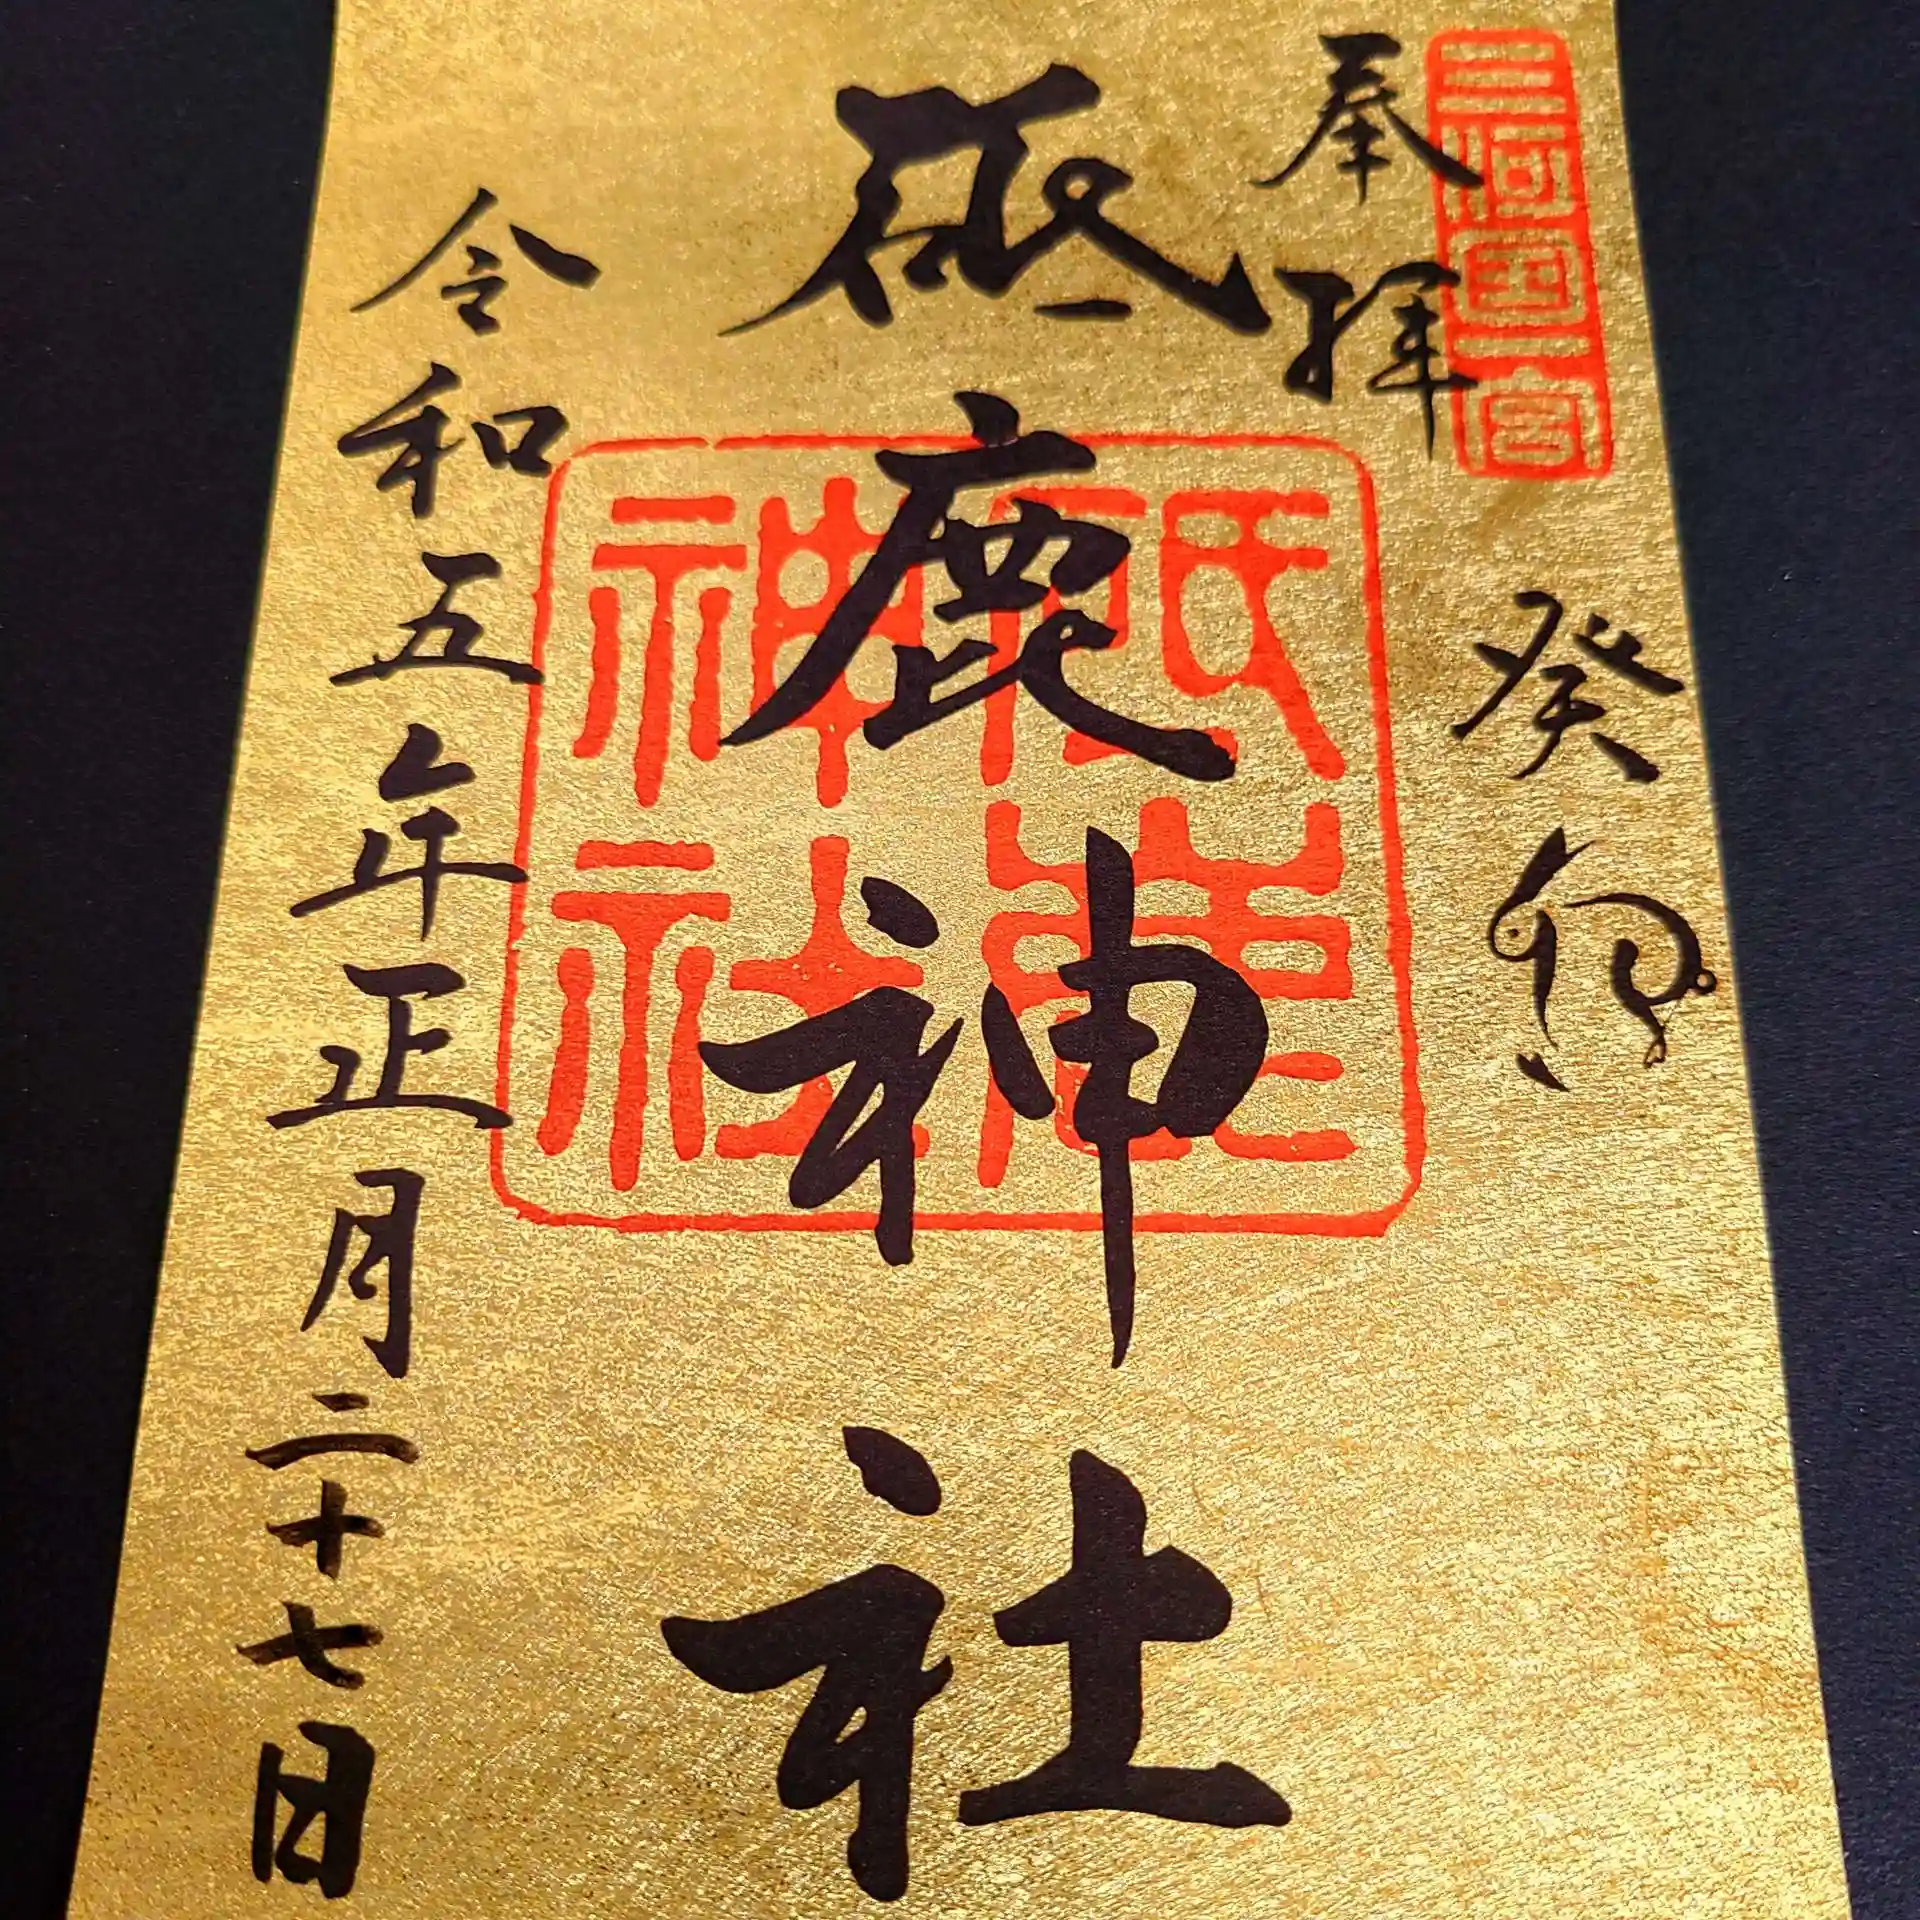 三河国一宮
奉拝
癸卯
砥鹿神社
砥鹿神社
令和五年正月二十七日